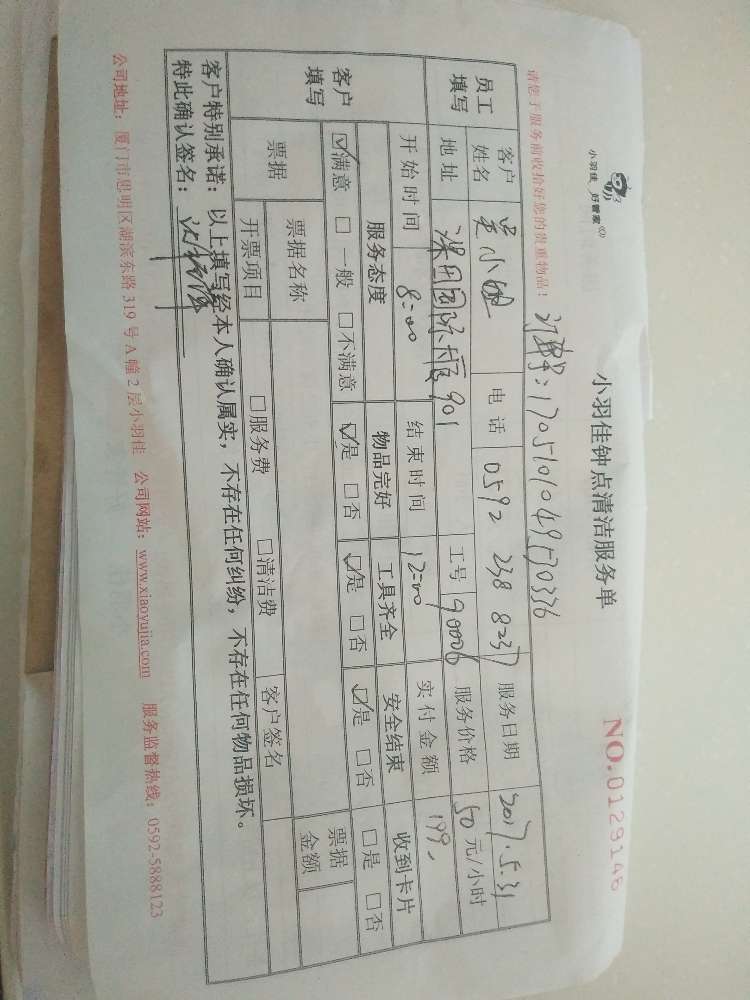 小羽佳 好管家
小羽佳钟点清洁服务单
NO.0129146
请您于服务前收拾好您的贵重物品!
订单号:1705101049570336
员工填写 客户姓名 吴小姐 电话 0592 238 8237 服务日期 2017.5.31
地址 国际大厦901 工号 90006 服务价格 50元/小时
开始时间 8:00 结束时间 12:00 实付金额 199.
客户填写 服务态度 物品完好 工具齐全 安全结束 收到卡片
☑满意 □一般 □不满意 ☑是 □否 ☑是 □否 ☑是 □否 □是 □否
票据 票据名称 票据金额
开票项目 □服务费 □清洁费 客户签名
客户特别承诺:以上填写经本人确认属实,不存在任何纠纷,不存在任何物品损坏。
特此确认签名:
公司地址:厦门市思明区湖滨东路319号A幢2层小羽佳 公司网站:www.xiaoyujia.com 服务监督热线:0592-5888123